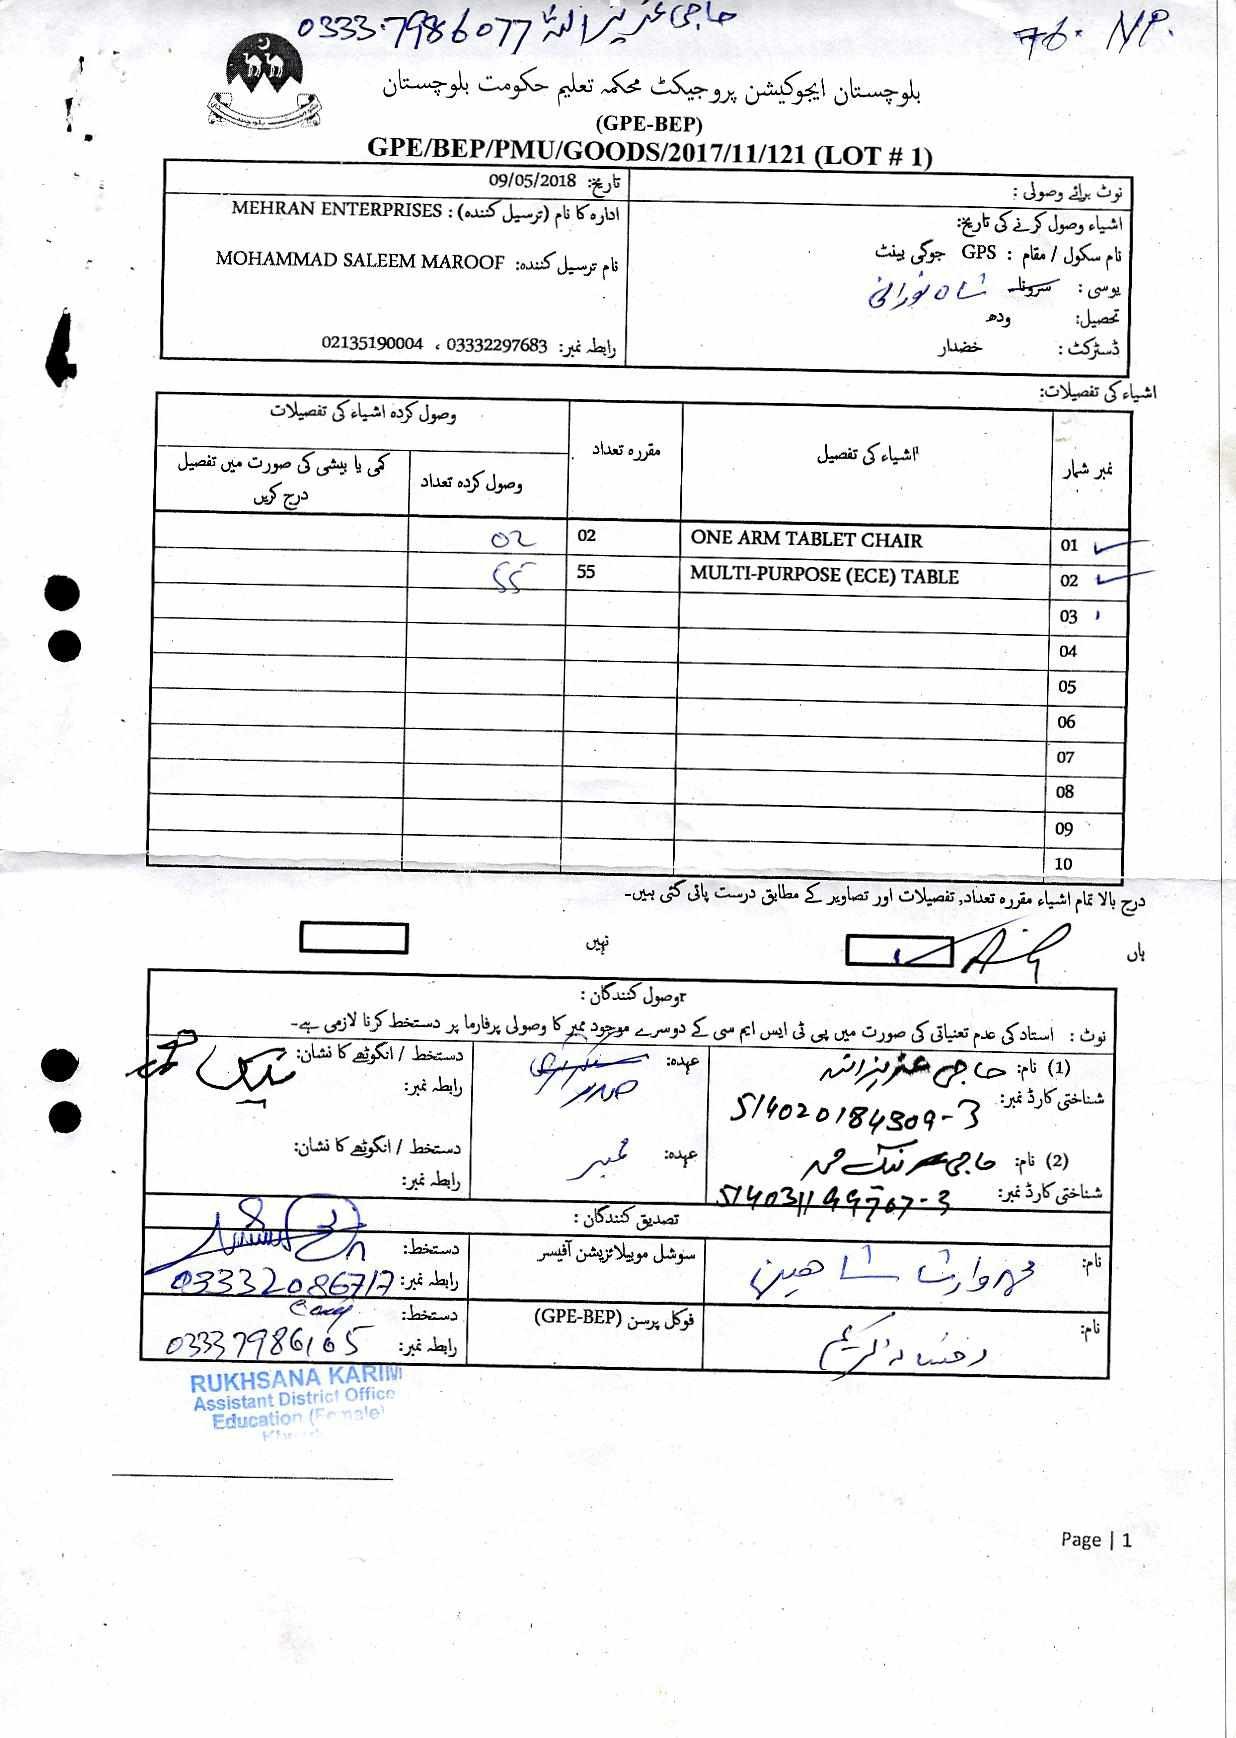 0333-7986077 حاجی عزیز اللہ
76. NP.
بلوچستان ایجوکیشن پروجیکٹ محکمہ تعلیم حکومت بلوچستان
(GPE-BEP)
GPE/BEP/PMU/GOODS/2017/11/121 (LOT # 1)
نوٹ برائے وصولی :
تاریخ: 09/05/2018
اشیاء وصول کرنے کی تاریخ:
ادارہ کا نام (ترسیل کنندہ) : MEHRAN ENTERPRISES
نام سکول / مقام : GPS جوگی بینٹ
نام ترسیل کنندہ: MOHAMMAD SALEEM MAROOF
یوسی : سرونہ شاہ نورانی
تحصیل: ودھ
ڈسٹرکٹ : خضدار
رابطہ نمبر: 03332297683 ، 02135190004
اشیاء کی تفصیلات:
نمبر شمار اشیاء کی تفصیل مقررہ تعداد وصول کردہ اشیاء کی تفصیلات
وصول کردہ تعداد کمی یا بیشی کی صورت میں تفصیل درج کریں
01 ONE ARM TABLET CHAIR 02 02
02 MULTI-PURPOSE (ECE) TABLE 55 55
03
04
05
06
07
08
09
10
درج بالا تمام اشیاء مقررہ تعداد, تفصیلات اور تصاویر کے مطابق درست پائی گئی ہیں۔
ہاں نہیں
وصول کنندگان :
نوٹ : استاد کی عدم تعیناتی کی صورت میں پی ٹی ایس ایم سی کے دوسرے موجود ممبر کا وصولی پرفارما پر دستخط کرنا لازمی ہے۔
(1) نام: حاجی عزیز اللہ عہدہ: صدر دستخط / انگوٹھے کا نشان:
شناختی کارڈ نمبر: 514020184309-3 رابطہ نمبر:
(2) نام: حاجی نیک محمد عہدہ: ممبر دستخط / انگوٹھے کا نشان:
شناختی کارڈ نمبر: رابطہ نمبر:
تصدیق کنندگان :
نام: محمد وارث شاھین سوشل موبیلائزیشن آفیسر دستخط:
رابطہ نمبر: 03332086717
نام: رخسانہ کریم فوکل پرسن (GPE-BEP) دستخط:
رابطہ نمبر: 03337986165
RUKHSANA KARIM
Assistant District Office
Education (Female)
Page | 1